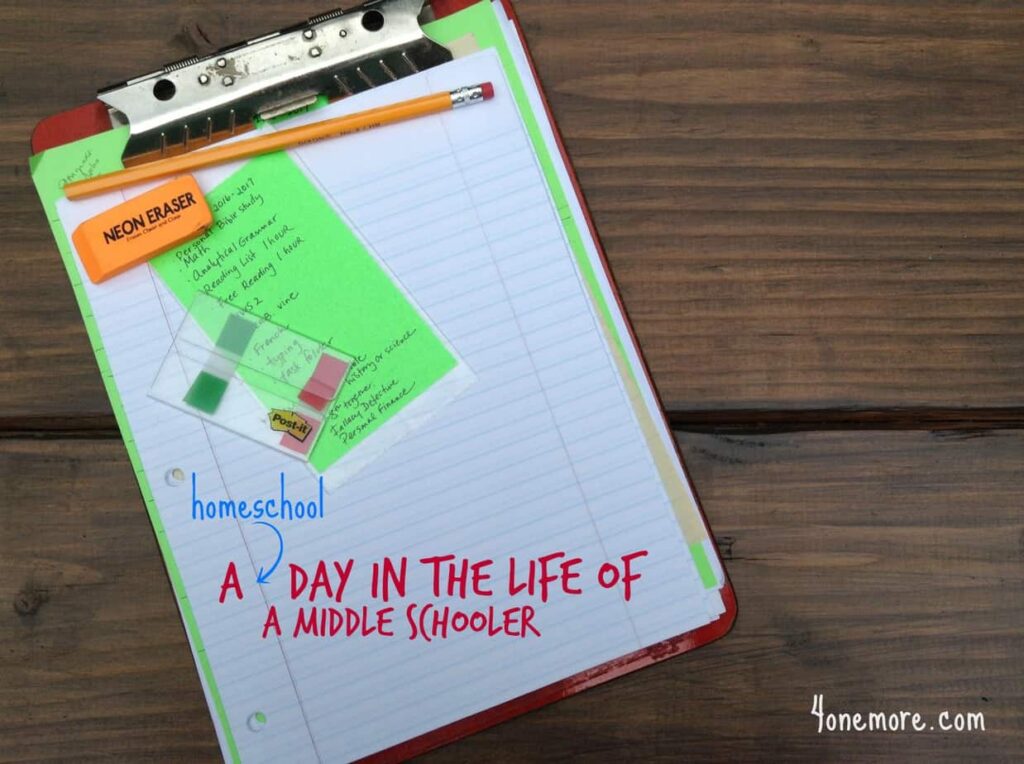 2016-2017
NEON ERASER
Personal Bible study
Math
Analytical Grammar
Reading List 1 hour
Free Reading 1 hour
vine
typing
task folder
history or science
together
Fallacy Detective
Personal Finance
Post-it
homeschool
A DAY IN THE LIFE OF
A MIDDLE SCHOOLER
4onemore.com